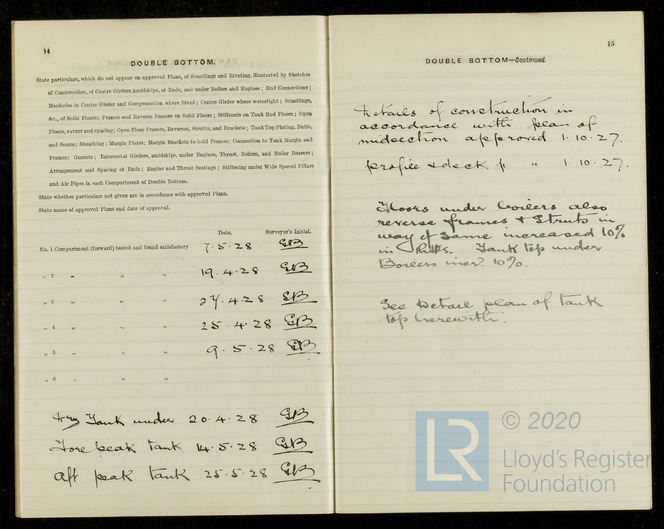 14
DOUBLE BOTTOM.
State particulars, which do not appear on approved Plans, of Scantlings and Riveting, illustrated by Sketches
of Construction, of Centre Girders Amidships, at Ends, and under Boilers and Engines; End Connections;
Manholes in Centre Girder and Compensation where fitted; Centre Girder where watertight; Scantlings,
&c., of Solid Floors; Frames and Reverse Frames on Solid Floors; Stiffeners on Tank End Floors; Open
Floors, extent and spacing; Open Floor Frames, Reverses, Struts, and Brackets; Tank Top Plating, Butts,
and Seams; Sheathing; Margin Plates; Margin Brackets to hold Frames; Connection to Tank Margin and
Frames; Gussets; Intercostal Girders, amidships, under Engines, Thrust, Boilers, and Boiler Bearers;
Arrangement and Spacing at Ends; Engine and Thrust Seatings; Stiffening under Wide Spaced Pillars
and Air Pipes in each Compartment of Double Bottom.
State whether particulars not given are in accordance with approved Plans.
State name of approved Plans and date of approval.
Date. Surveyor's Initial.
No. 1 Compartment (forward) tested and found satisfactory 7.5.28 GB
„ 2 „ „ „ 19.4.28 GB
„ 3 „ „ „ 27.4.28 GB
„ 4 „ „ „ 25.4.28 GB
„ 5 „ „ „ 9.5.28 GB
„ 6 „ „ „
Dry Tank under 20.4.28 GB
Fore peak tank 14.5.28 GB
Aft peak tank 25.5.28 GB
15
DOUBLE BOTTOM—Continued.
Details of construction in
accordance with plan of
midsection approved 1.10.27.
profile & deck " 1.10.27.
Floors under boilers also
reverse frames & Struts in
way of same increased 10%
in thkns. Tank top under
Boilers incr. 10%.
See Detail plan of tank
top herewith.
LR
© 2020
Lloyd's Register
Foundation